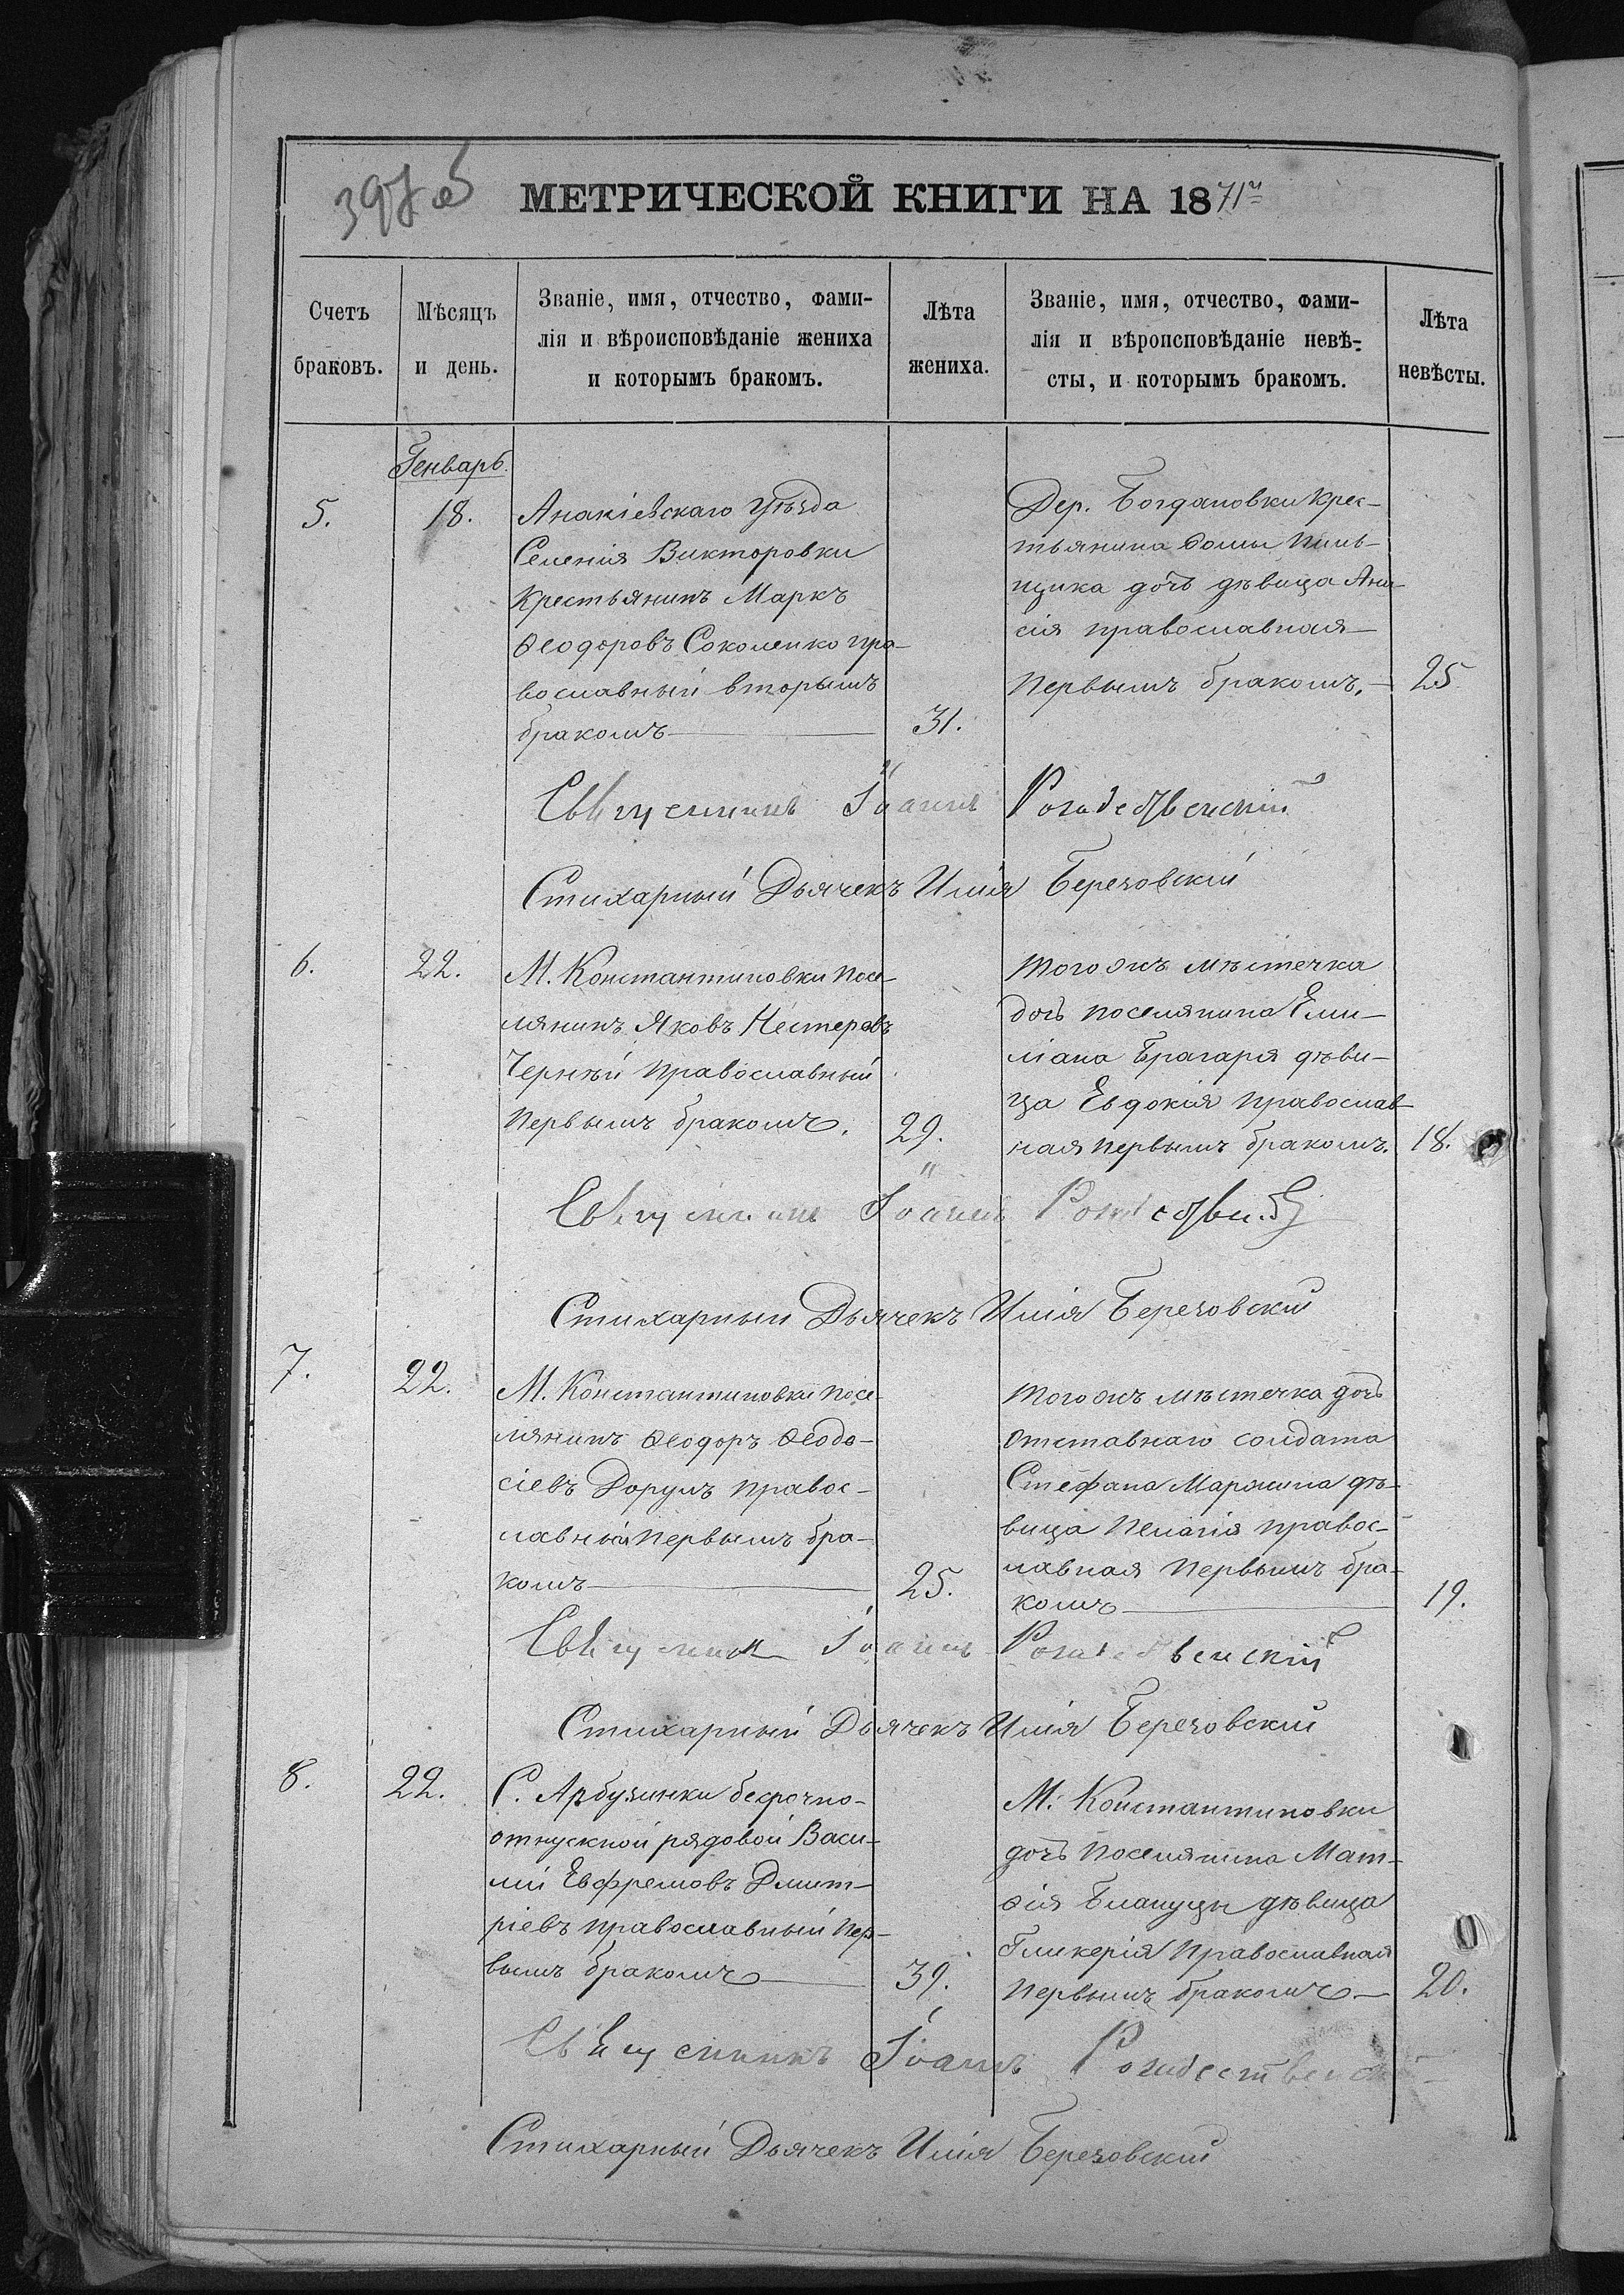 397 об
МЕТРИЧЕСКОЙ КНИГИ НА 1871й
Счетъ браковъ.
Мѣсяцъ и день.
Званіе, имя, отчество, фами-
лія и вѣроисповѣданіе жениха
и которымъ бракомъ.
Лѣта жениха.
Званіе, имя, отчество, фами-
лія и вѣроисповѣданіе невѣ-
сты, и которымъ бракомъ.
Лѣта невѣсты.
Генварь.
5.
18.
Ананіевскаго Уѣзда
Селенія Викторовки
Крестьянинъ Маркъ
Ѳеодоровъ Соколенко пра-
вославный вторымъ
бракомъ
31.
Дер. Богдановки Крес-
тьянина Ѳомы
дочь дѣвица Ани-
сія православная
Первымъ бракомъ.
25
Священникъ Іоаннъ Рождественскій
Стихарный Дьячекъ Илія Березовскій
6.
22.
М. Константиновки посе-
лянинъ Яковъ Нестеровъ
Чернѣй Православный
Первымъ бракомъ.
29.
того жъ мѣстечка
дочь поселянина Еми-
ліана Брагаря дѣви-
ца Евдокія православ-
ная первымъ бракомъ.
18.
Священникъ Іоаннъ
Стихарный Дьячекъ Илія Березовскій
7.
22.
М. Константиновки посе-
лянинъ Ѳеодоръ Ѳеодо-
сіевъ Дорумъ правос-
лавный Первымъ бра-
комъ
25.
того жъ мѣстечка дочь
отставнаго солдата
Стефана Марянина дѣ-
вица Пелагія правос-
лавная Первымъ бра-
комъ
19.
Священникъ Іоаннъ Рождественскій
Стихарный Дьячекъ Илія Березовскій
8.
22.
С. Арбузинки безсрочно-
отпускной рядовой Васи-
лій Евфремовъ Дмит-
ріевъ православный пер-
вымъ бракомъ
39.
М. Константиновки
дочь поселянина Мат-
ѳія дѣвица
Гликерія Православная
Первымъ бракомъ
20.
Священникъ Іоаннъ Рождественскій
Стихарный Дьячекъ Илія Березовскій